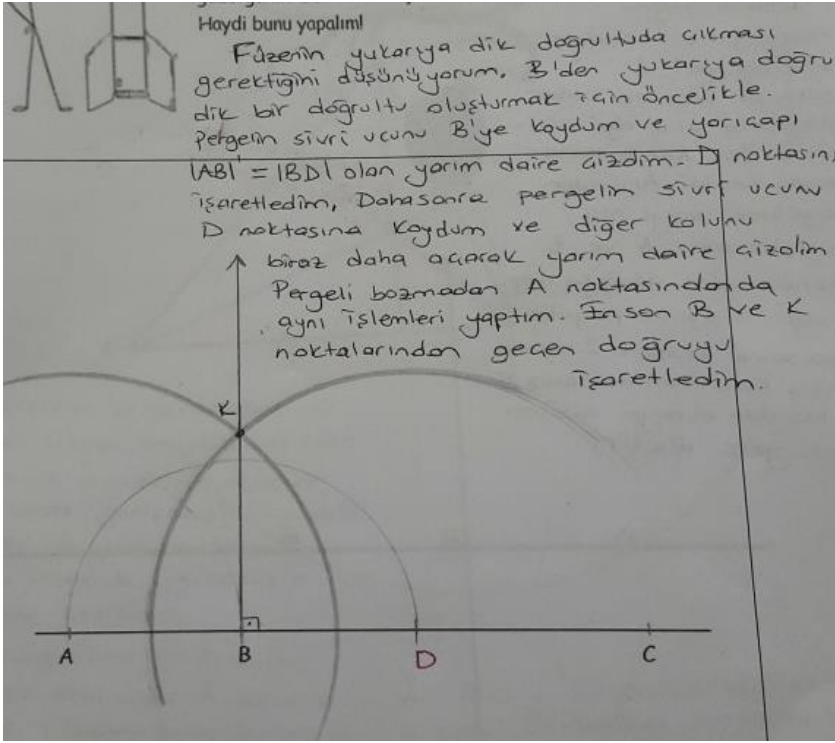 Haydi bunu yapalım!
Füzenin yukarıya dik doğrultuda çıkması
gerektiğini düşünüyorum. B'den yukarıya doğru
dik bir doğrultu oluşturmak için öncelikle.
Pergelin sivri ucunu B'ye koydum ve yarıçapı
|AB| = |BD| olan yarım daire çizdim. D noktasını
işaretledim, Daha sonra pergelin sivri ucunu
D noktasına koydum ve diğer kolunu
biraz daha açarak yarım daire çizelim
Pergeli bozmadan A noktasından da
aynı işlemleri yaptım. En son B ve K
noktalarından geçen doğruyu
işaretledim.
K
A B D C